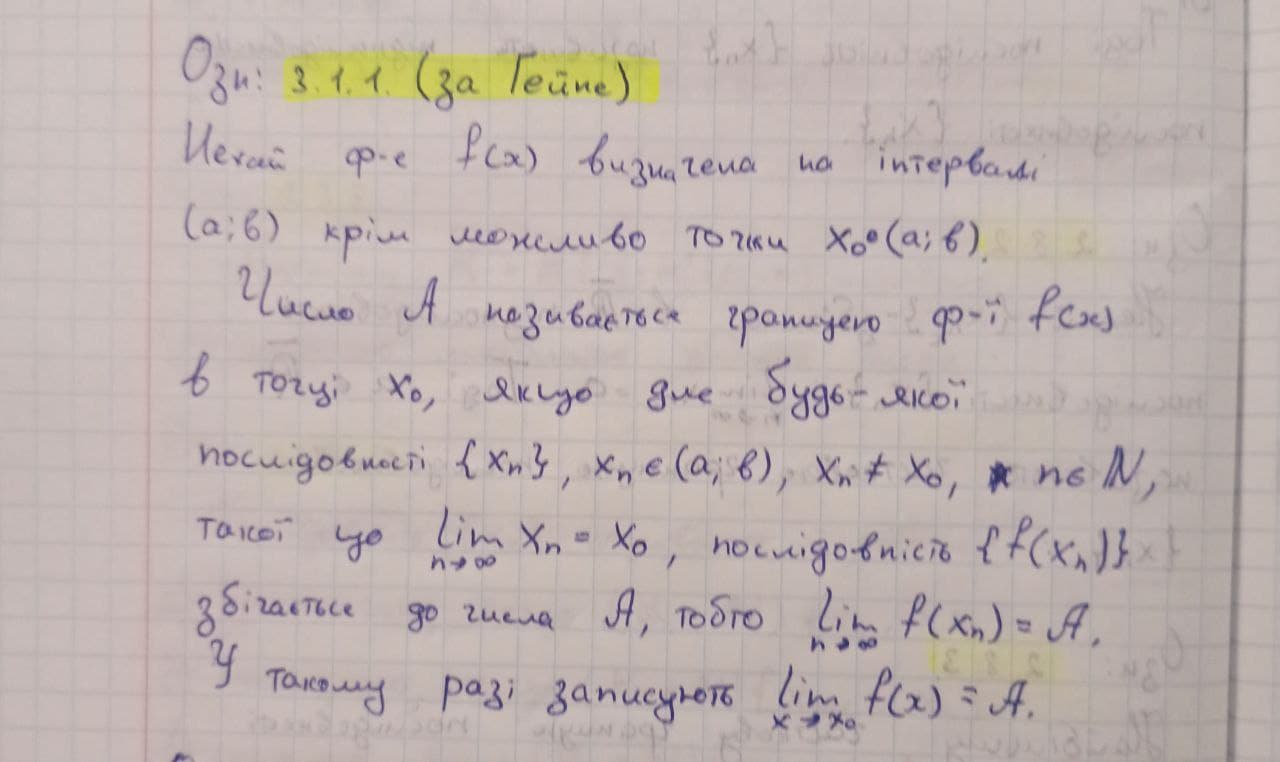 Озн: 3.1.1. (за Гейне)
Нехай ф-я f(x) визначена на інтервалі
(a;b) крім можливо точки x₀∈(a;b).
Число A називається границею ф-ї f(x)
в точці x₀, якщо для будь-якої
послідовності {xₙ}, xₙ∈(a;b), xₙ≠x₀, n∈N,
такої що lim n→∞ xₙ = x₀, послідовність {f(xₙ)}
збігається до числа A, тобто lim n→∞ f(xₙ) = A.
У такому разі записують lim x→x₀ f(x) = A.